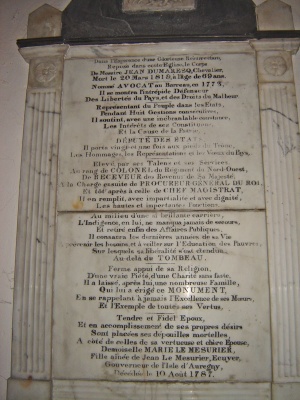 Dans l'Esperance d'une Glorieuse Résurrection,
Repose dans cette Eglise, le Corps
De Messire JEAN DUMARESQ, Chevalier,
Mort le 20 Mars 1819, à l'âge de 69 ans.
Nommé AVOCAT au Barreau, en 1772,
Il se montra l'intrépide Défenseur
Des Libertés du Pays, et des Droits du Malheur
Représentant du Peuple dans les Etats,
Pendant Huit Gestions consécutives,
Il soutint, avec une inébranlable constance,
Les Intérêts de ses Constituans
Et la Cause de la Patrie.
DÉPUTÉ DES ÉTATS,
Il porta vingt et une fois aux pieds du Trône,
Les Hommages, les Représentations et les Voeux du Pays,
Elevé par ses Talens et ses Services,
Au rang de COLONEL du Régiment du Nord-Ouest,
De RECEVEUR des Revenus de Sa Majesté,
A la Charge de PROCUREUR GENERAL DU ROI,
Et à celle de CHEF MAGISTRAT,
Il en remplit, avec impartialité et avec dignité,
Les hautes et importantes fonctions.
Au milieu d'une si brillante carrière,
L'Indigence, en lui, ne manqua jamais de secours,
Et retiré enfin des Affaires Publiques,
Il consacra les dernières années de sa Vie
les besoins et à veiller sur l'Education des Pauvres
Sur lesquels sa libéralité s'est étendue,
Au delà du TOMBEAU.
Ferme appui de sa Religion,
D'une vraie Piété, d'une Charité sans faste,
Il a laissé, après lui, une nombreuse Famille,
Qui lui a érigé ce MONUMENT,
En se rappelant à jamais l'Excellence de ses Moeurs,
Et l'Exemple de toutes ses Vertus.
Tendre et Fidel Epoux,
Et en accomplissement de ses propres désirs
Sont placées ses dépouilles mortelles,
A côté de celles de sa vertueuse et chère Epouse,
Demoiselle MARIE LE MESURIER,
Fille aînée de Jean Le Mesurier, Ecuyer,
Gouverneur de l'Isle d'Auregny,
Décédée le 10 Août 1787.